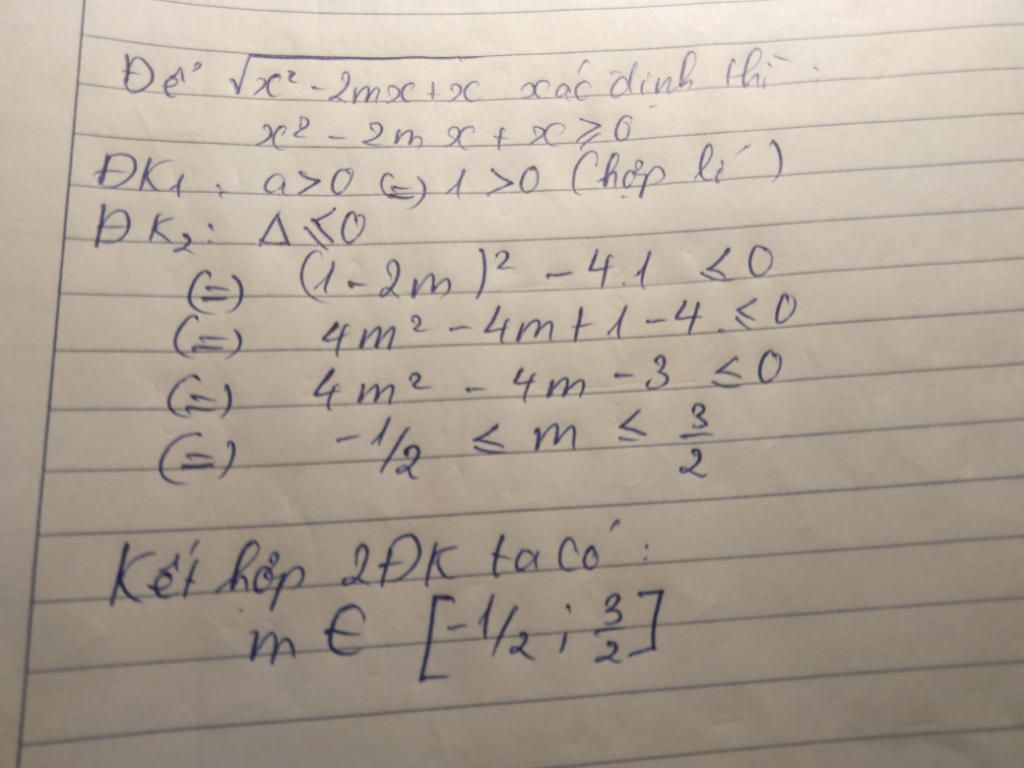 Để √(x² - 2mx + x) xác định thì:
x² - 2mx + x ⩾ 0
ĐK₁: a > 0 (=) 1 > 0 (hợp lí)
ĐK₂: Δ ⩽ 0
(=) (1 - 2m)² - 4.1 ≤ 0
(=) 4m² - 4m + 1 - 4 ≤ 0
(=) 4m² - 4m - 3 ≤ 0
(=) -1/2 ≤ m ≤ 3/2
Kết hợp 2ĐK ta có:
m ∈ [-1/2; 3/2]